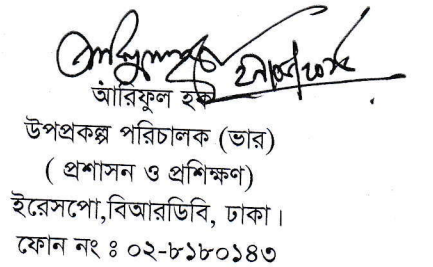 আরিফুল হক
উপপ্রকল্প পরিচালক (ভার)
( প্রশাসন ও প্রশিক্ষণ)
ইরেসপো,বিআরডিবি, ঢাকা।
ফোন নং ঃ ০২-৮১৮০১৪৩